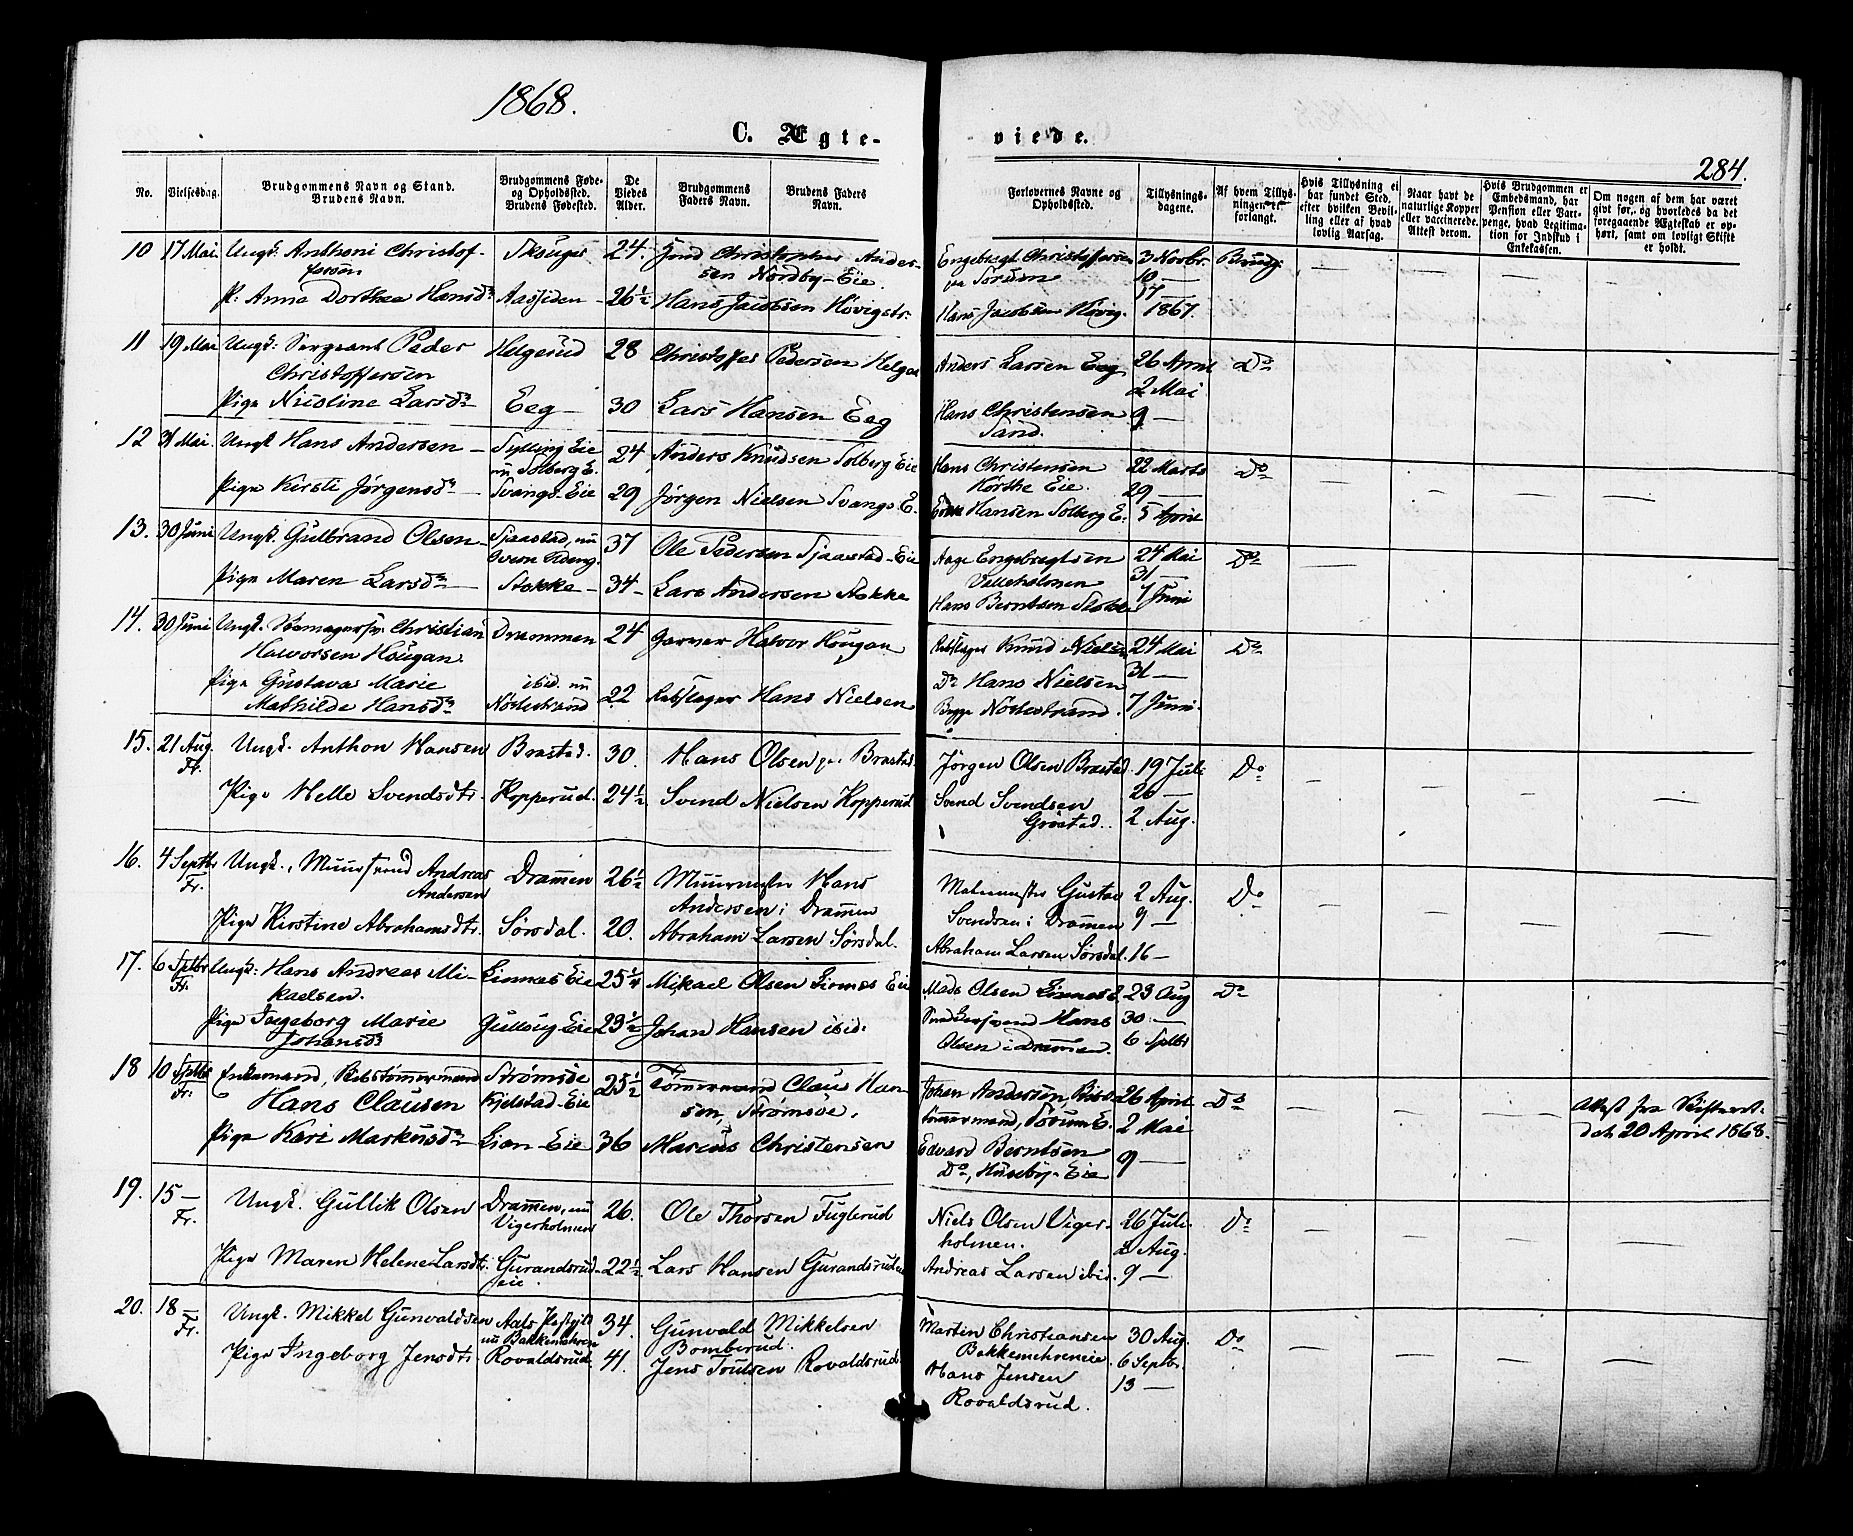 1868.
C. Ægte-
viede.
284.
No.
Vielsesdag.
Brudgommens Navn og Stand.
Brudens Navn.
Brudgommens Føde-
og Opholdssted.
Brudens Fødested.
De
Viedes
Alder.
Brudgommens
Faders Navn.
Brudens Faders
Navn.
Forlovernes Navne og
Opholdssted.
Tillysnings-
dagene.
Af hvem Tillys-
ningen er
forlangt.
Hvis Tillysning ei
har fundet Sted,
efter hvilken Bevil-
ling eller af hvad
lovlig Aarsag.
Naar havt de
naturlige Kopper
eller vaccinerede.
Attest derom.
Hvis Brudgommen er
Embedsmand, har
Pension eller Vart-
penge, hvad Legitima-
tion for Indskud i
Enkekassen.
Om nogen af dem har været
gift før, og hvorledes da det
foregaaende Ægteskab er op-
hørt, samt om lovligt Skifte
er holdt.
10 17 Mai. Ungk. Anthoni Christof- Skouger 24. Christopher Ander- Engebregt Christoffersen 3 Novbr. Brudg.
fersen sen Nordby-Eie. 10 —
P. Anna Dorthea Hansd. Aassiden 26½ Hans Jacobsen Hövigstr. 17 —
Hans Jacobsen Hövig. 1867.
11 19 Mai Ungk: Sergeant Peder Helgerud 28 Christoffer Pedersen Anders Larsen Eeg 26 April Do
Christoffersen 2 Mai
Pige Nicoline Larsd. Eeg — 30 Lars Hansen Eeg Hans Christensen 9 —
Sand.
12 31 Mai. Ungk Hans Andersen — Sylling Eie 24 Anders Knudsen Solberg Eie Hans Christensen 22 Marts Do
nu Solberg E. Eie. 29 —
Pige Kirsti Jørgensd. Svangs-Eie 29 Jørgen Nielsen Svangs E. Hansen Solberg E. 5 April
13. 30 Juni Ungk. Gulbrand Olsen Sjaastad, nu 37 Ole Pedersen Sjaastad-Eie Aage Engebregtsen 24 Mai Do
31 —
Pige Maren Larsd. Stokke — 34 Lars Andersen Stokke Hans Berntsen Stokke 7 Juni
14. 30 Juni Ungk. Skomagersv. Christian Drammen 24 Garver Halvor Hougan Rebslager Knud Nielsen 24 Mai Do
Halvorsen Hougan. 31 —
Pige Gustava Marie ibid. nu 22 Rebslager Hans Nielsen Do Hans Nielsen
Mathilde Hansd. Nöstestrand Begge Nöstestrand. 7 Juni.
15. 21 Aug. Ungk. Anthon Hansen Brastad. 30. Hans Olsen Brastad Jørgen Olsen Brastad. 19 Juli Do
Fr. 26 —
Pige Helle Svendsdtr. Kopperud. 24½ Svend Nielsen Kopperud Svend Svendsen
Gröstad. 2 Aug.
16. 4 Septbr Ungk., Muursvend Andreas Dramen 26½ Muurmester Hans Malermester Gustav 2 Aug. Do
Fr. Andersen Andersen i Dramen Svendsen i Dramen 9 —
Pige Kirstine Abrahamsdtr. Sørsdal. 20. Abraham Larsen Sørsdal. Abraham Larsen Sørsdal. 16 —
17. 6 Septbr Ungk: Hans Andreas Mi- Linnæs Eie 25¼ Mikael Olsen Linnæs Eie Mads Olsen Linnæs E 23 Aug Do
Fr. kaelsen. Hans 30 —
Pige Ingeborg Marie Gullaug Eie 23½ Johan Hansen ibid. Olsen i Dramen. 6 Septbr
Johansd.
18 10 Septbr Enkemand, Skibstömmermand Strømsöe 25½ Tömmermand Claus Han- Johan Andersen Skibs- 26 April Do Attest fra Skifteret.
Fr. Hans Clausen Kjelstad-Eie sen, Strømsöe. tömmermand, Sörum E. 2 Mai dat. 20 April 1868.
Pige Kari Markusd. Lian-Eie 36 Marcus Christensen Edvard Berntsen 9 —
Do, Huseby-Eie
19. 15 — Ungk. Gullik Olsen Dramen, nu 26. Ole Thorsen Fuglerud Niels Olsen Viger- 26 Juli Do
Fr. Vigerholmen holmen. 2 Aug.
Pige Maren Helene Larsdtr. Gurandsrud- 22½ Lars Hansen Gurandsrudeie Andreas Larsen ibid. 9 —
eie.
20. 18 — Ungk. Mikkel Gunvaldsen Aals Pr. 34. Gunvald Mikkelsen Martin Christiansen 30 Aug. Do
Fr. nu Bakkemehreneie Bomberud. Bakkemehreneie 6 Septbr.
Pige Ingeborg Jensdtr. Rovaldsrud. 41. Jens Toulsen Rovaldsrud. Hans Jensen 13 —
Rovaldsrud.